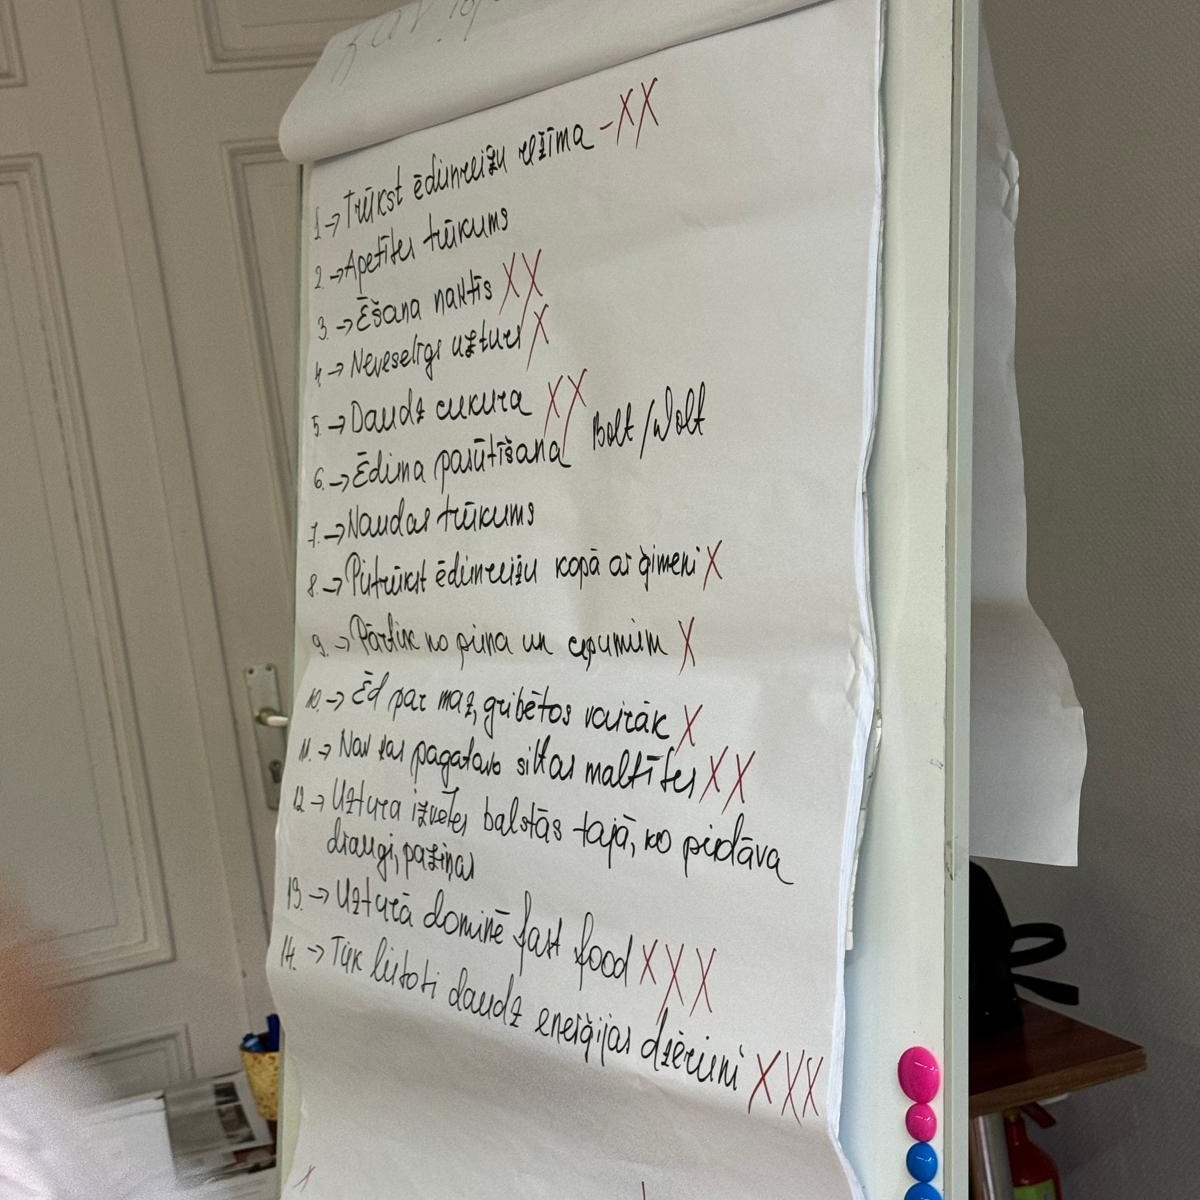 1. → Trūkst ēdienreižu režīma - XX
2. → Apetītes trūkums
3. → Ēšana naktīs XX
4. → Neveselīgs uzturs X
5. → Daudz cukura XX
6. → Ēdiena pasūtīšana Bolt/Wolt
7. → Naudas trūkums
8. → Pietrūkst ēdienreižu kopā ar ģimeni X
9. → Pārtiek no piena un cepumiem X
10. → Ēd par maz, gribētos vairāk X
11. → Nav kas pagatavo siltas maltītes XX
12. → Uztura izvēles balstās tajā, ko piedāva
draugi, paziņas
13. → Uzturā dominē fast food XXX
14. → Tiek lietoti daudz enerģijas dzērieni XXX